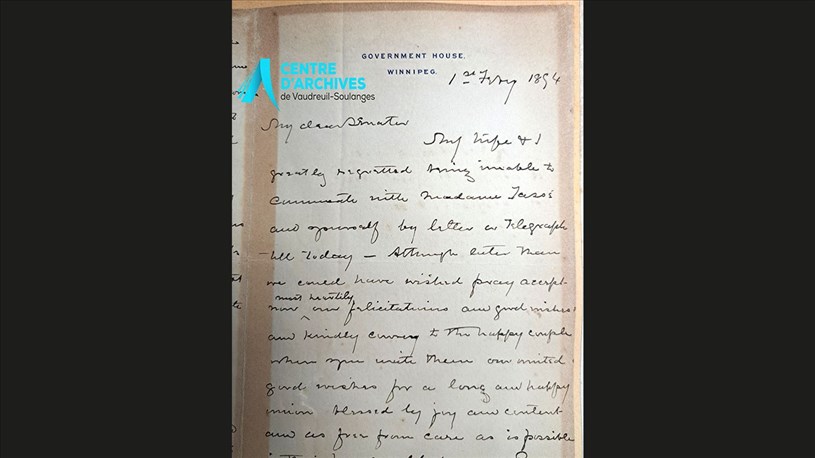 GOVERNMENT HOUSE,
WINNIPEG.
1st Febry 1894
CENTRE
D'ARCHIVES
de Vaudreuil-Soulanges
My dear Senator
My Wife & I
greatly regretted being unable to
communicate with Madame Tassé
and yourself by letter or Telegraph
till today — Although later than
we could have wished pray accept
most heartily
now our felicitations and good wishes
and kindly convey to the happy couple
when you write them our united
good wishes for a long and happy
union blessed by joy and content
and as free from care as is possible